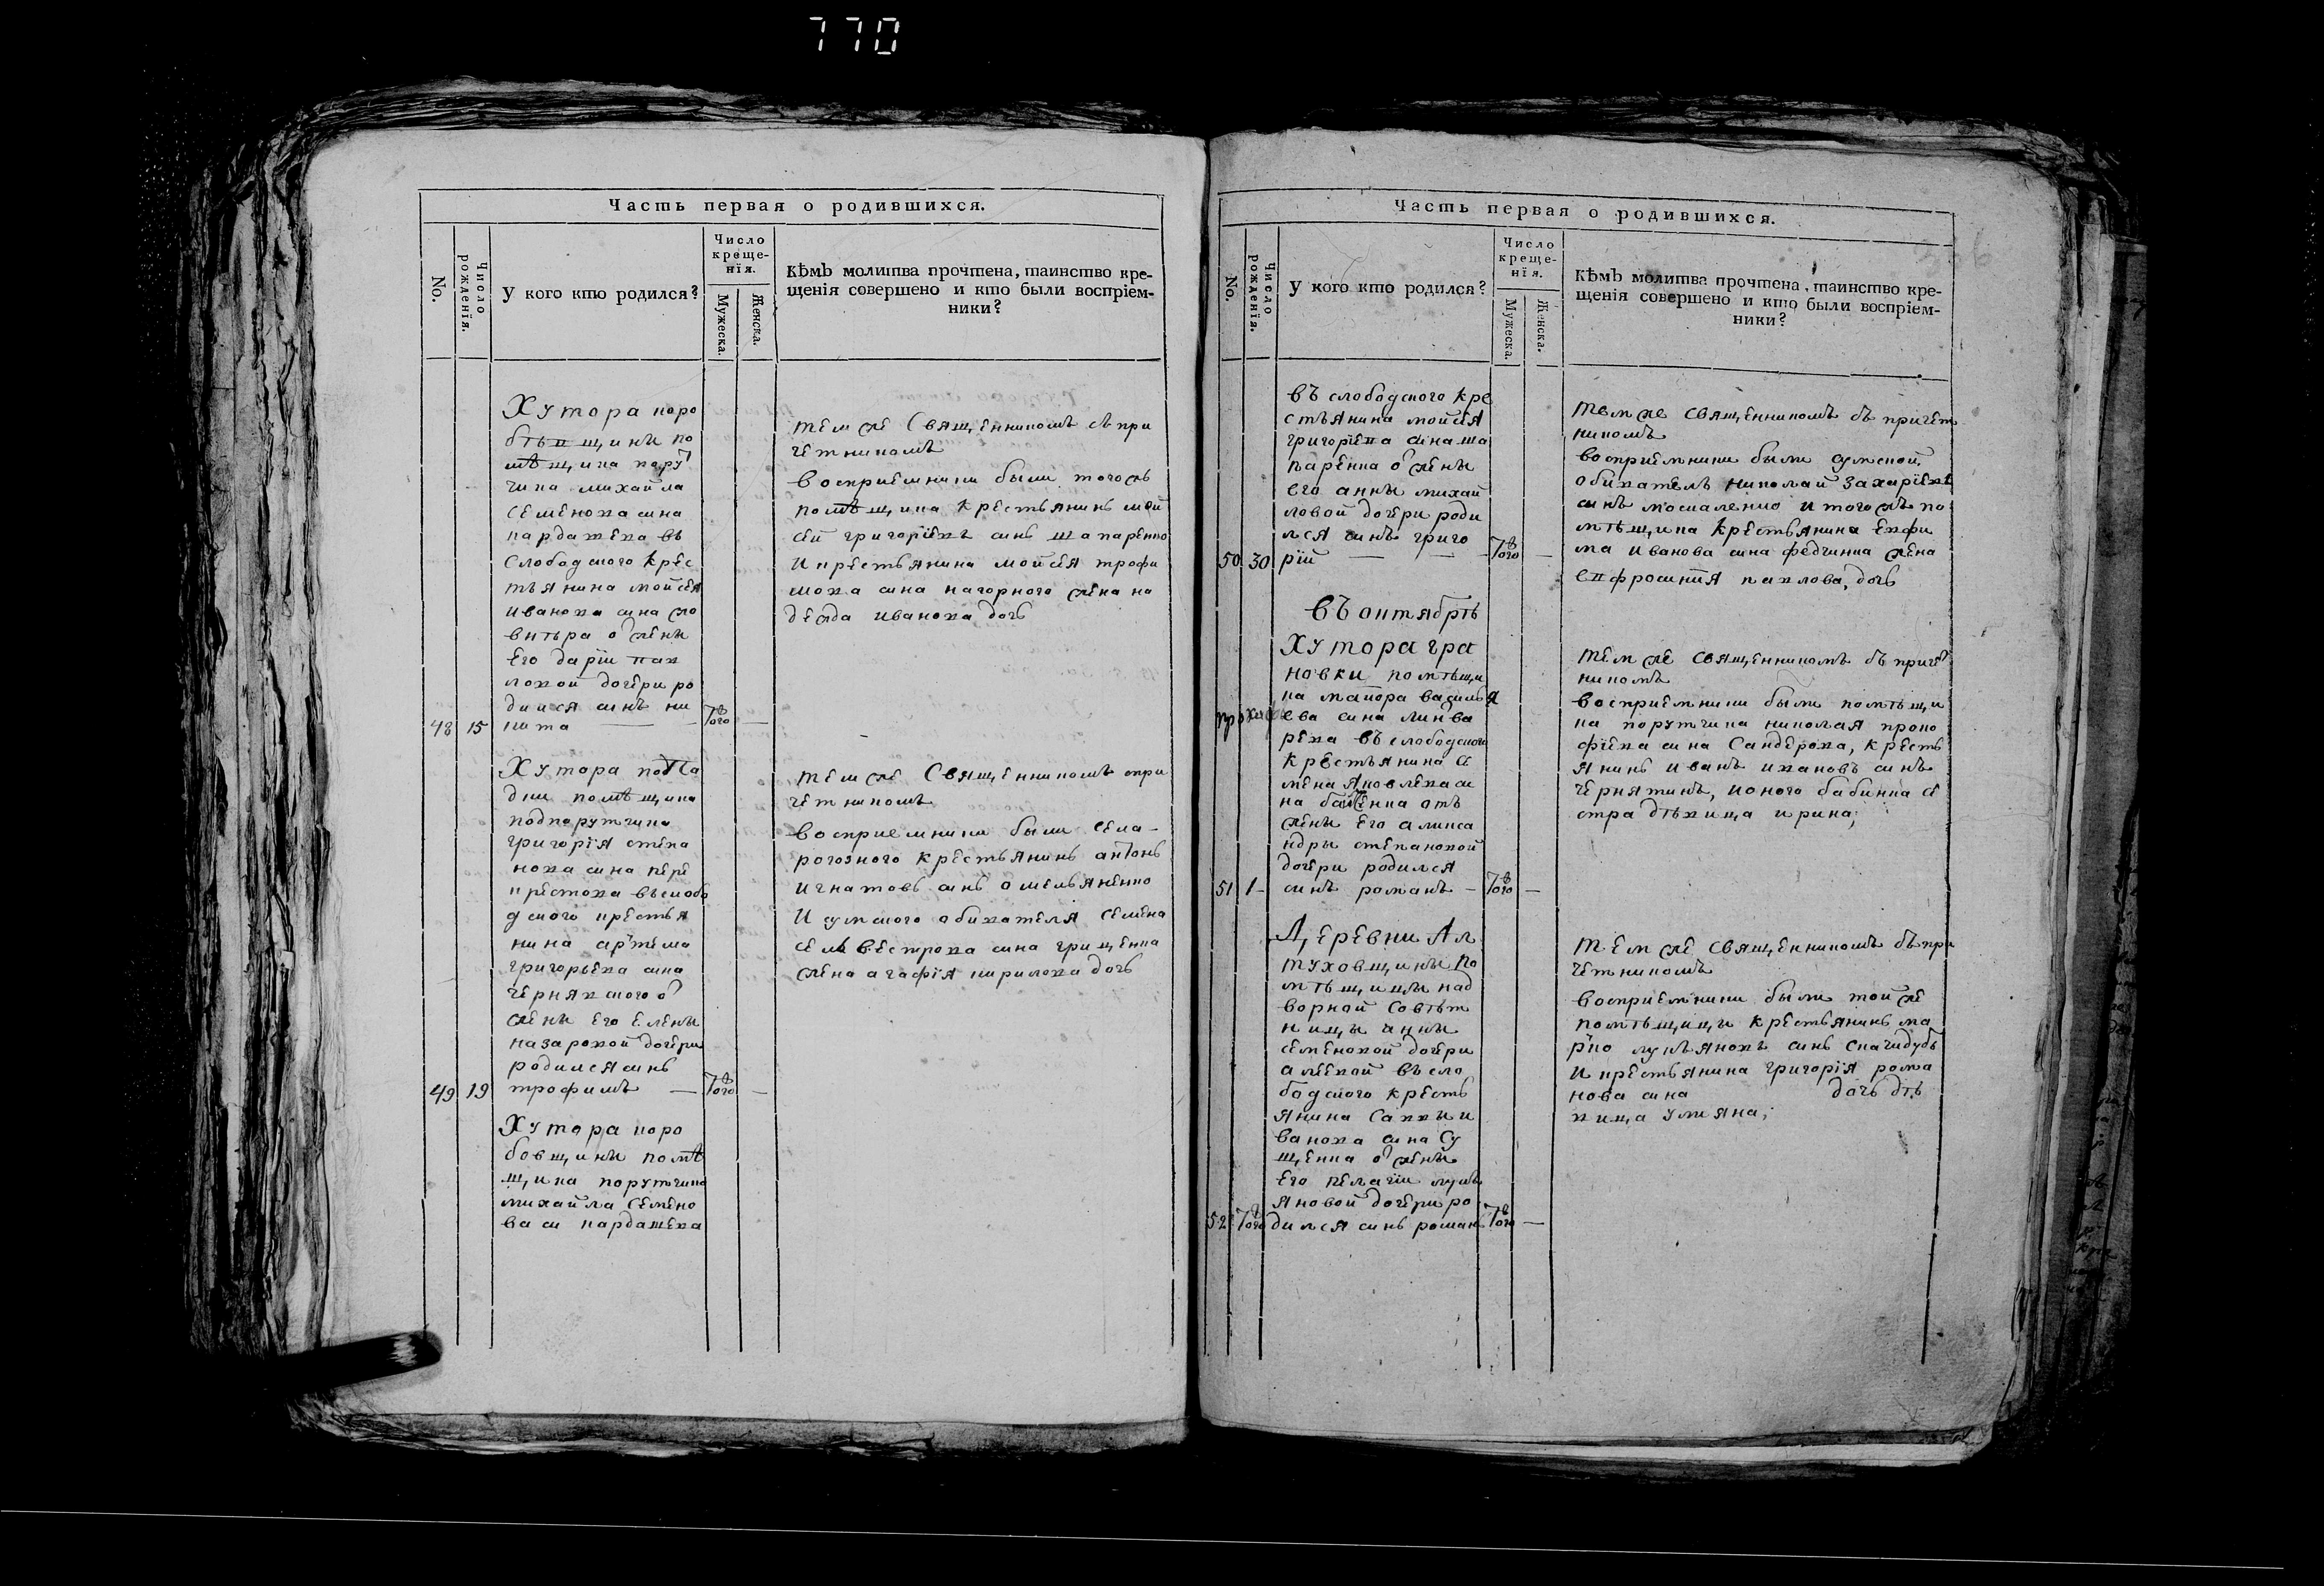 770
Часть первая о родившихся.
No.
Число рожденїя.
У кого кто родился?
Число креще-нїя.
Мужеска.
Женска.
Кѣмъ молитва прочтена, таинство кре-
щенія совершено и кто были воспріем-
ники?
Хутора коро
бѣвщины по
мѣщика пору
чика михайла
семенова сина
кардашева въ
слободского крес
тьянина мойсея
иванова сина
о жены
его дарїи пав
ловой дочери ро
дился синъ ни
48 15 кита — 7ого —
тем же Священникомъ съ при
четникомъ
восприемники были того жъ
помѣщика крестьянинъ мой
сей григорїевъ синъ шапаренко
и крестьянина мойсея трофи
мова сина нагорного жена на
дежда иванова дочь
Хутора
дки помѣщика
подпоручика
григорїя степа
нова сина пере
крестова въ слобо
дского крестья
нина артема
григорьева сина
чернявского о
жены его елены
назаровой дочери
родился синъ
49 19 трофимъ — 7ого —
тем же Священникомъ с при
четникомъ
восприемники были села
рогозного крестьянинъ антонъ
игнатовъ синъ омельяненко
и сумского обивателя семена
селивестрова сина грищенка
жена агафїя кирилова дочь
Хутора коро
бовщины помѣ
щика поручика
михайла семено
ва си кардашева
Часть первая о родившихся.
No.
Число рожденїя.
У кого кто родился?
Число креще-нїя.
Мужеска.
Женска.
Кѣмъ молитва прочтена, таинство кре-
щенія совершено и кто были воспріем-
ники?
въ слободского кре
стьянина мойсея
григорїева сина ша
паренка о жены
его анны михай
ловой дочери роди
лся синъ григо
50 30 рїй — 7ого —
тем же священникомъ съ причет
никомъ
восприемники были сумской
обиватель николай захарїевъ
синъ москаленко и того жъ по
мѣщика крестьянина евфи
ма иванова сина федченка жена
евфросинїя павлова дочь
въ октябрѣ
Хутора гра
новки помѣщи
ка маіора василья
ева сина линва
рева въ слободского
крестьянина се
мена яковлева си
на отъ
жены его алекса
ндры степановой
дочери родился
51 1 синъ романъ — 7ого —
тем же священникомъ съ причет
никомъ
восприемники были помѣщи
ка поручика николая проко
фїева сина Сандерова, кресть
янинъ иванъ ивановъ синъ
чернятинъ, и оного бабенка се
стра дѣвица ирина,
Деревни Ал
туховщины по
мѣщицы над
ворной совѣт
ницы анны
семеновой дочери
алеевой въ сло
бодского кресть
янина саввы и
ванова сина су
щенка о жены
его пелагїи лукь
яновой дочери ро
52 7ого дился синъ романъ 7ого —
тем же священникомъ съ при
четникомъ
восприемники были той же
помѣщицы крестьянинъ ма
рко лукьяновъ синъ
и крестьянина григорїя рома
нова сина дочь дѣ
вица улияна,